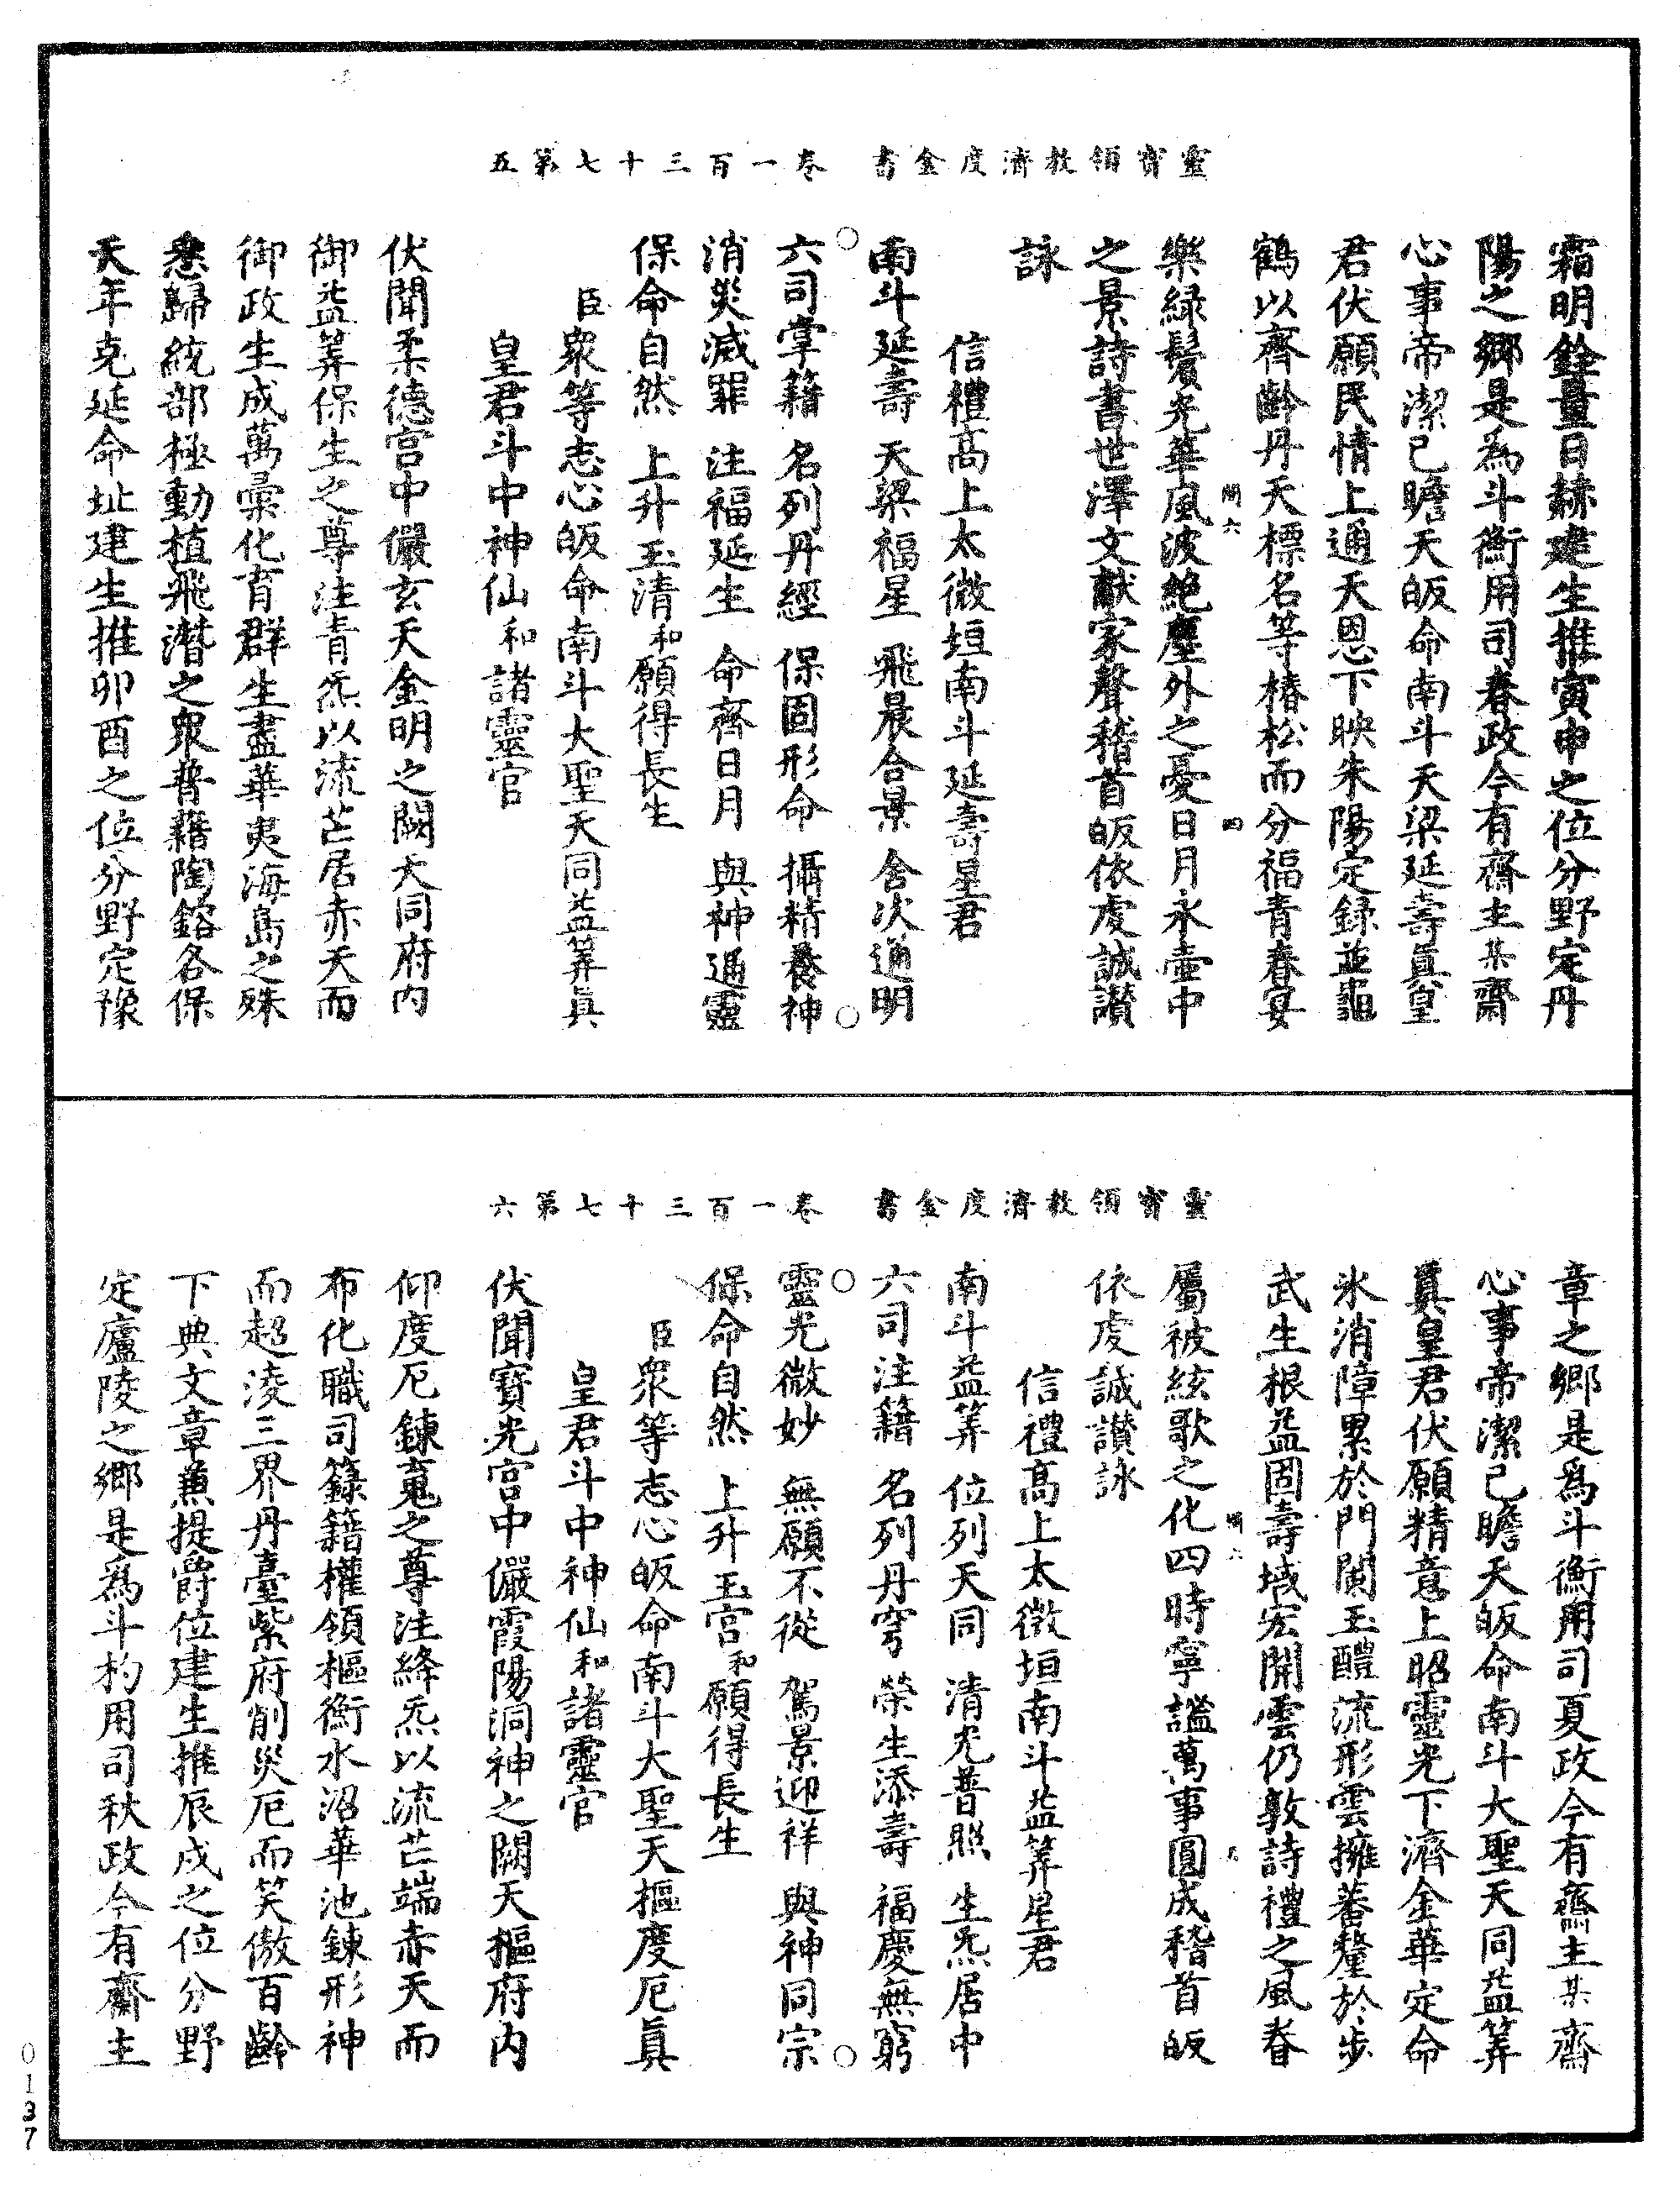 靈寶領教濟度金書　卷一百三十七第五
霜明銓量日赫建生推寅申之位分野定丹
陽之鄉是為斗衡用司春政今有齋主某齋
心事帝潔己瞻天皈命南斗天梁延壽眞皇
君伏願民情上通天恩下映朱陽定録並龜
鶴以齊齡丹天標名等椿松而分福青春宴
樂緑鬢光華風波絶塵外之憂日月永壺中
之景詩書世澤文獻家聲稽首皈依虔誠讃
詠
信禮高上太微垣南斗延壽星君
南斗延壽　天梁福星　飛晨合景　舍次通明
六司掌籍　名列丹經　保固形命　攝精養神
消災滅罪　注福延生　命齊日月　與神通靈
保命自然　上升玉清和願得長生
臣衆等志心皈命南斗大聖天同益筭眞
皇君斗中神仙和諸靈官
伏聞柔德宫中儼玄天金明之闕天同府内
御益筭保生之尊注青炁以流芒居赤天而
御政生成萬彚化育群生盡華夷海島之殊
悉歸統部極動植飛潛之衆普藉陶鎔各保
天年克延命址建生推卯酉之位分野定豫
靈寶領教濟度金書　卷一百三十七第六
章之鄉是爲斗衡用司夏政今有齋主某齋
心事帝潔己瞻天皈命南斗大聖天同益筭
眞皇君伏願精意上昭靈光下濟金華定命
氷消障累於門闌玉醴流形雲擁蕃釐於步
武生根益固壽域宏開雲仍敦詩禮之風眷
屬被絃歌之化四時寧謐萬事圓成稽首皈
依虔誠讃詠
信禮高上太微垣南斗益筭星君
南斗益筭　位列天同　清光普照　生炁居中
六司注籍　名列丹穹　榮生添壽　福慶無窮
靈光微妙　無願不從　駕景迎祥　與神同宗
保命自然　上升玉宫和願得長生
臣衆等志心皈命南斗大聖天樞度厄眞
皇君斗中神仙和諸靈官
伏聞寶光宫中儼霞陽洞神之闕天樞府内
仰度厄鍊䰟之尊注絳炁以流芒端赤天而
布化職司籙籍權領樞衡水沼華池鍊形神
而超淩三界丹臺紫府削災厄而笑傲百齡
下典文章兼提爵位建生推辰戌之位分野
定廬陵之鄉是爲斗杓用司秋政今有齋主
0137